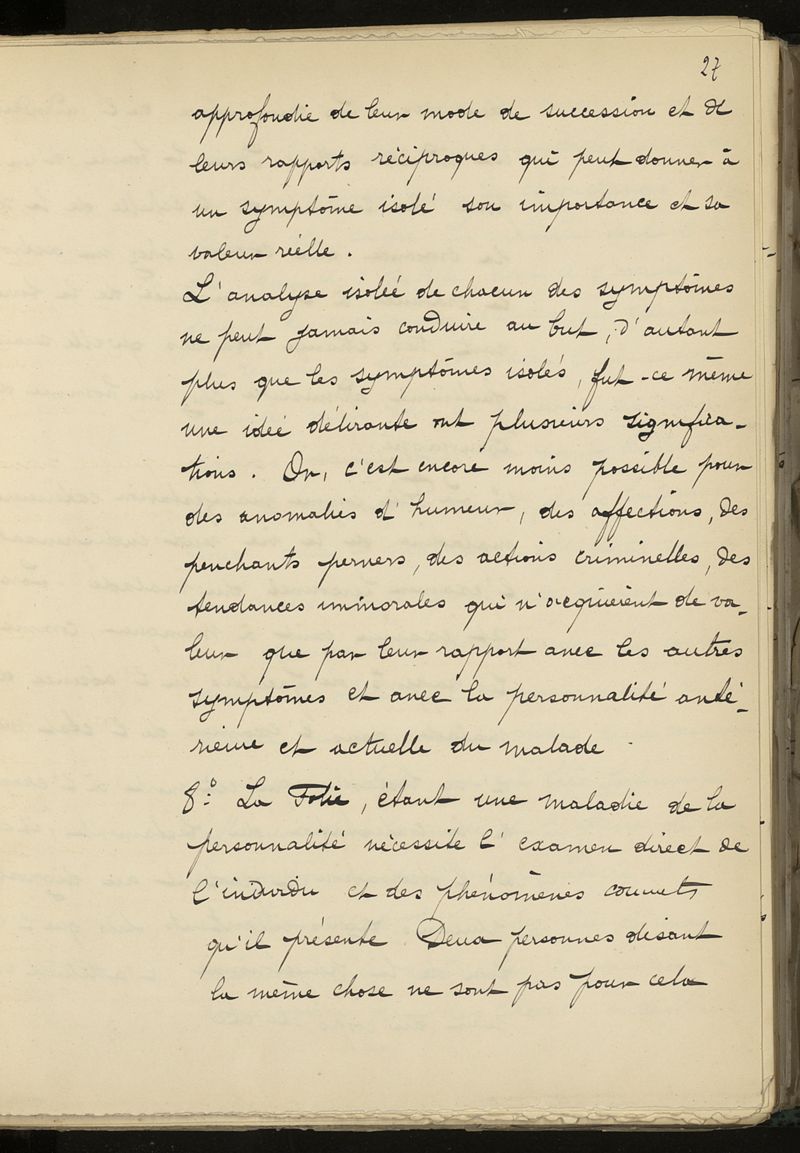 27
approfondie de leur mode de succession et de
leurs rapports réciproques qui peut donner à
un symptôme isolé son importance et sa
valeur réelle.
L'analyse isolée de chacun des symptômes
ne peut jamais conduire au but, d'autant
plus que les symptômes isolés, fut-ce même
une idée délirante ont plusieurs significa-
tions. Or, c'est encore moins possible pour
des anomalies d'humeur, des affections, des
penchants pervers, des actions criminelles, des
tendances immorales qui n'acquièrent de va-
leur que par leur rapport avec les autres
symptômes et avec la personnalité anté-
rieure et actuelle du malade.
8º: La Folie, étant une maladie de la
personnalité nécessite l'examen direct de
l'individu et des phénomènes
qu'il présente. Deux personnes disant
la même chose ne sont pas pour cela